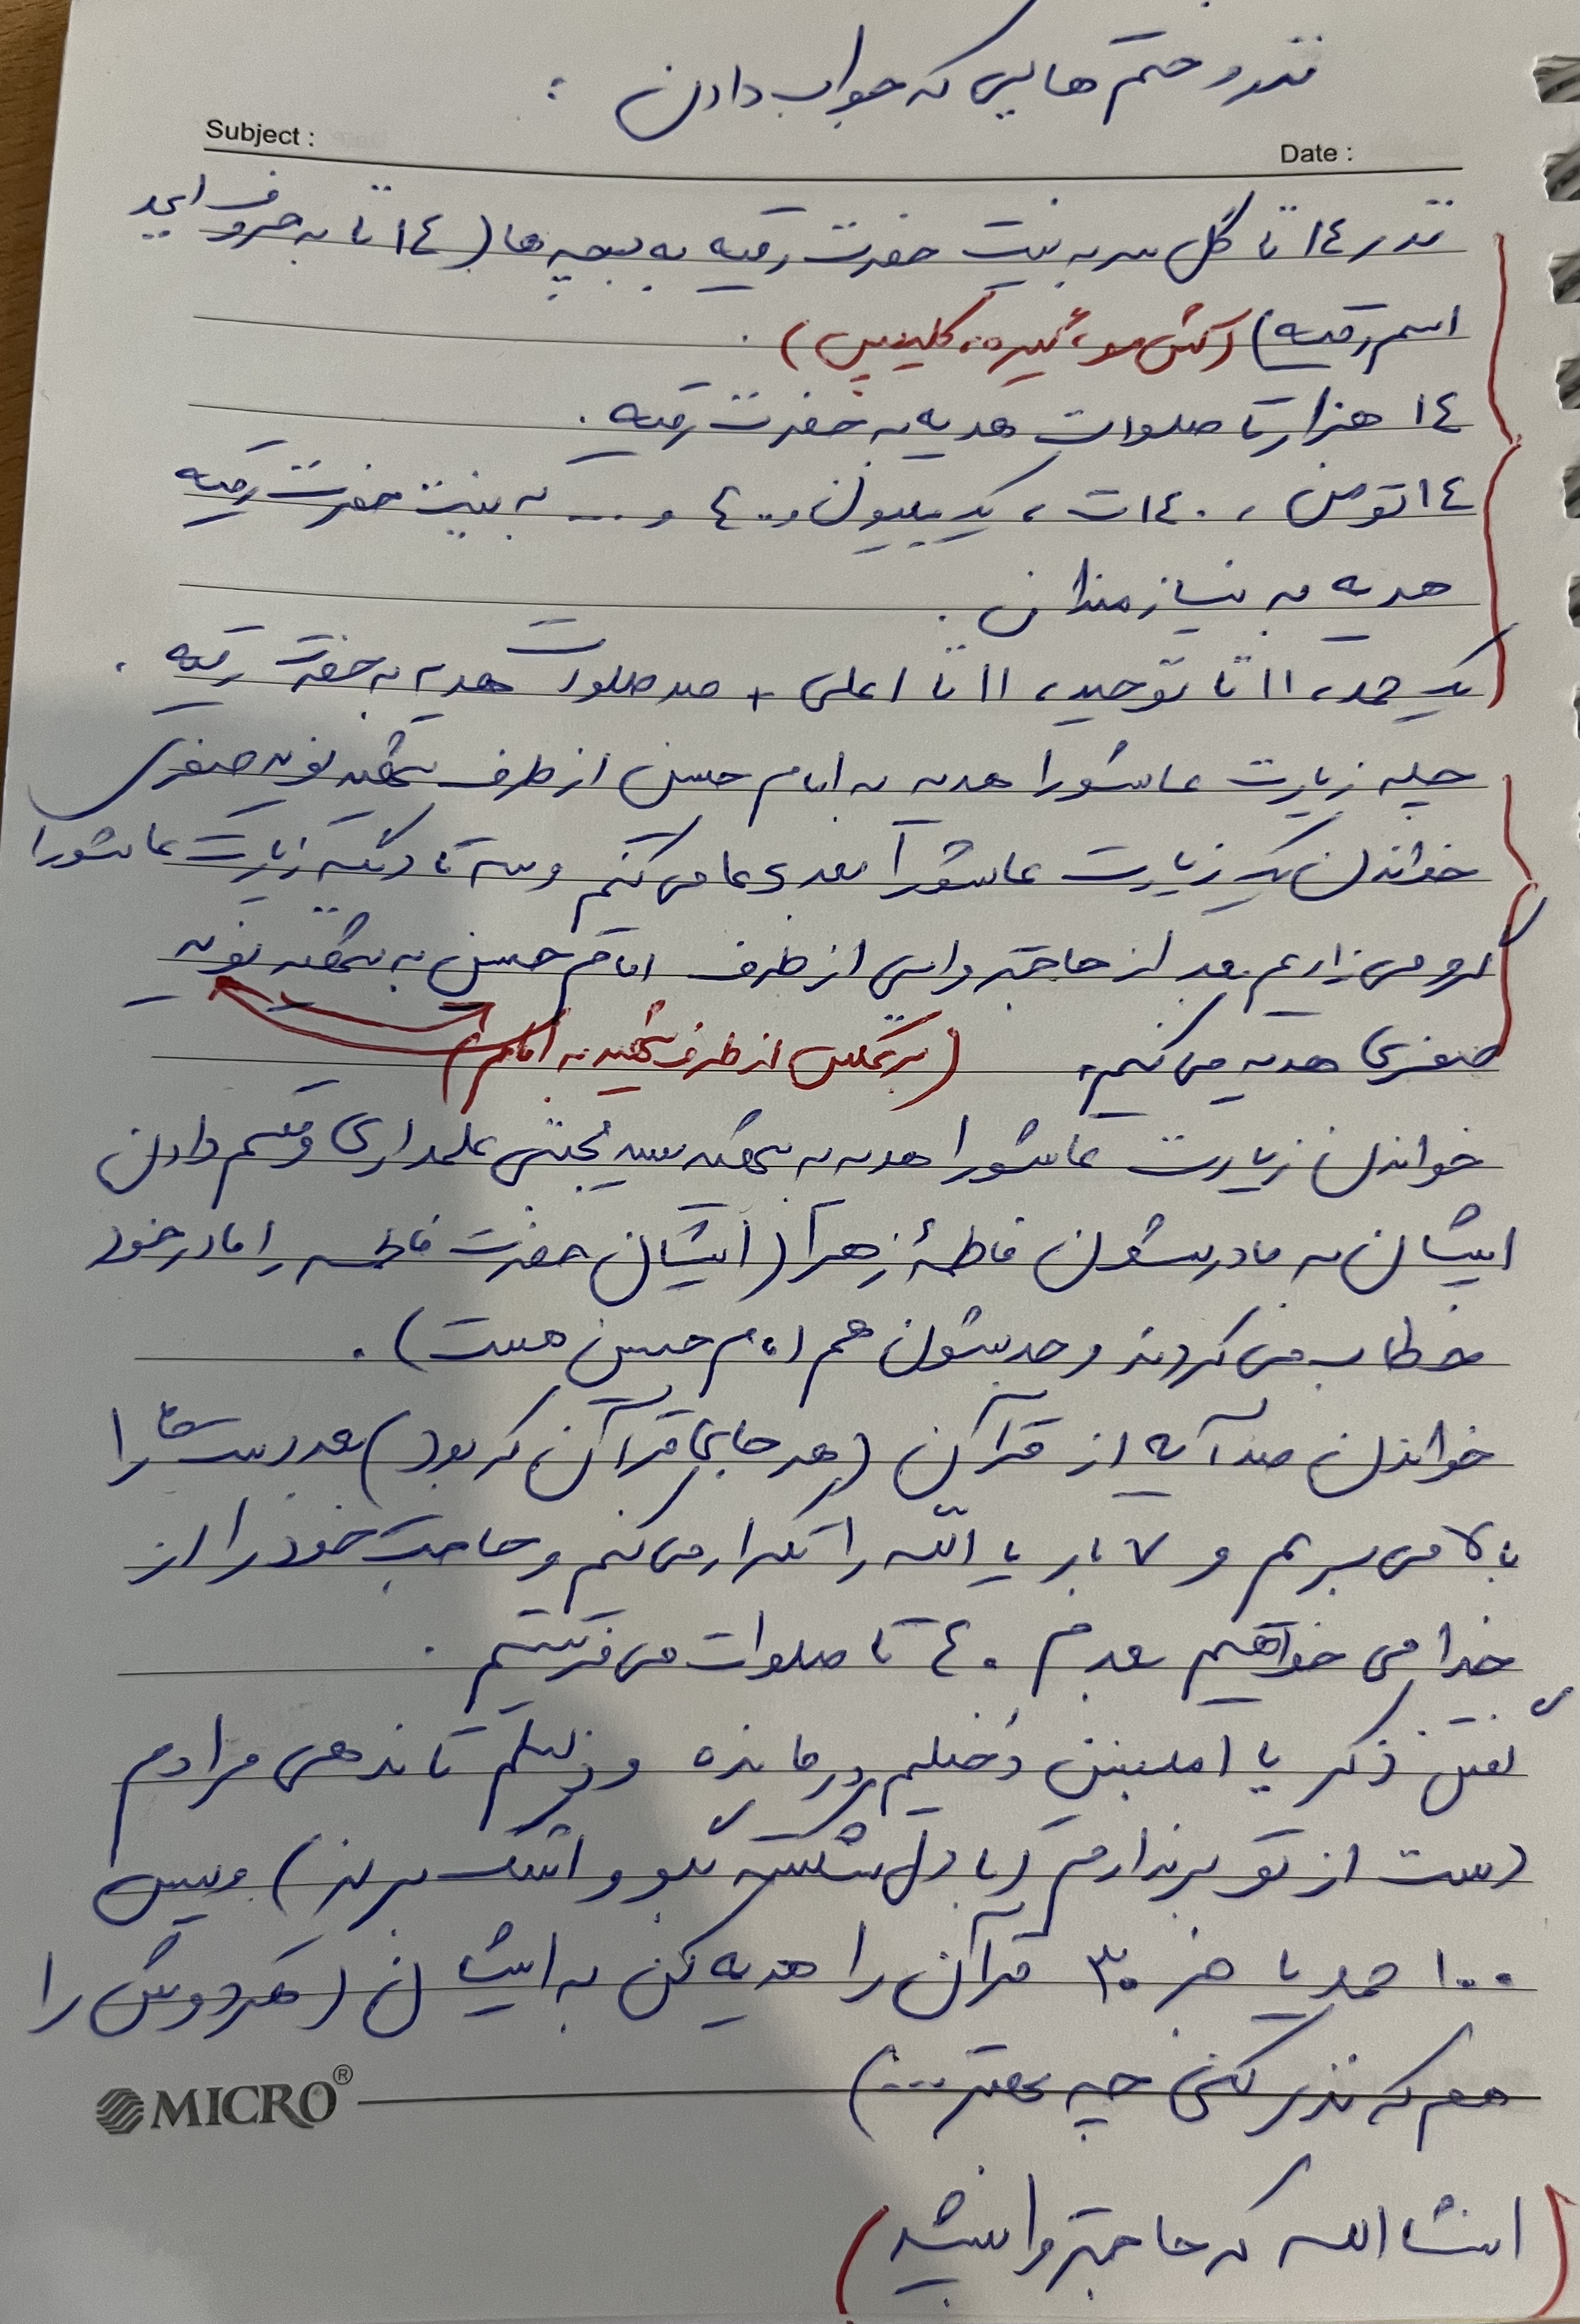 نذر و ختم هایی که جواب دادن :
Subject :
Date :
نذر ١٤ تا گل سر به نیت حضرت رقیه به بچه ها (١٤ تا به حروف ابجد
اسم رقیه) (کش مو، گیره، کلیپس) .
١٤ هزار تا صلوات هدیه به حضرت رقیه .
١٤ تومن ، ١٤٠ت ، یک میلیون و ٤٠٠ و ... به نیت حضرت رقیه
هدیه به نیازمندان .
یک حمد، ١١ تا توحید، ١١ تا اعلی + صد صلوات هدیه به حضرت رقیه .
چله زیارت عاشورا هدیه به امام حسن از طرف شهید نوید صفری
خواندن یک زیارت عاشورا بعد دعا می کنیم و سه تا دیگه زیارت عاشورا
گرو می زاریم بعد از حاجتروایی از طرف امام حسن به شهید نوید
صفری هدیه می کنیم. (برعکس از طرف شهید به امام)
خواندن زیارت عاشورا هدیه به شهید سید مجتبی علمداری و قسم دادن
ایشان به مادرشون فاطمهٔ زهرا (ایشان حضرت فاطمه را مادر خود
خطاب می کردند و جدشون هم امام حسن هست) .
خواندن صد آیه از قرآن (هر جای قرآن که بود) بعد دست ها را
بالا می بریم و ٧ بار یا الله را تکرار می کنیم و حاجت خود را از
خدا می خواهیم بعدم ٤٠ تا صلوات می فرستیم .
گفتن ذکر یا ام‌البنین دخیلم درمانده و ذلیلم تا ندهی مرادم
دست از تو برندارم (با دل شکسته بگو و اشک بریز) و سپس
١٠٠ حمد یا جز ٣٠ قرآن را هدیه کن به ایشان (هر دوش را
هم که نذر کنی چه بهتر ...)
MICRO®
(انشاالله که حاجتروا بشید)